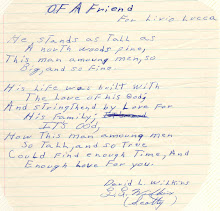 OF A Friend
For Livio Lucca
He stands as Tall as
A north woods pine,
This man amoung men, so
Big, and so fine.
His Life was built with
The Love of his Body
And stringthend by Love For
His Family;
It's odd,
How This man amoung men
So Tall, and so True
Could Find enough Time, And
Enough Love for you.
David L. Wilkins